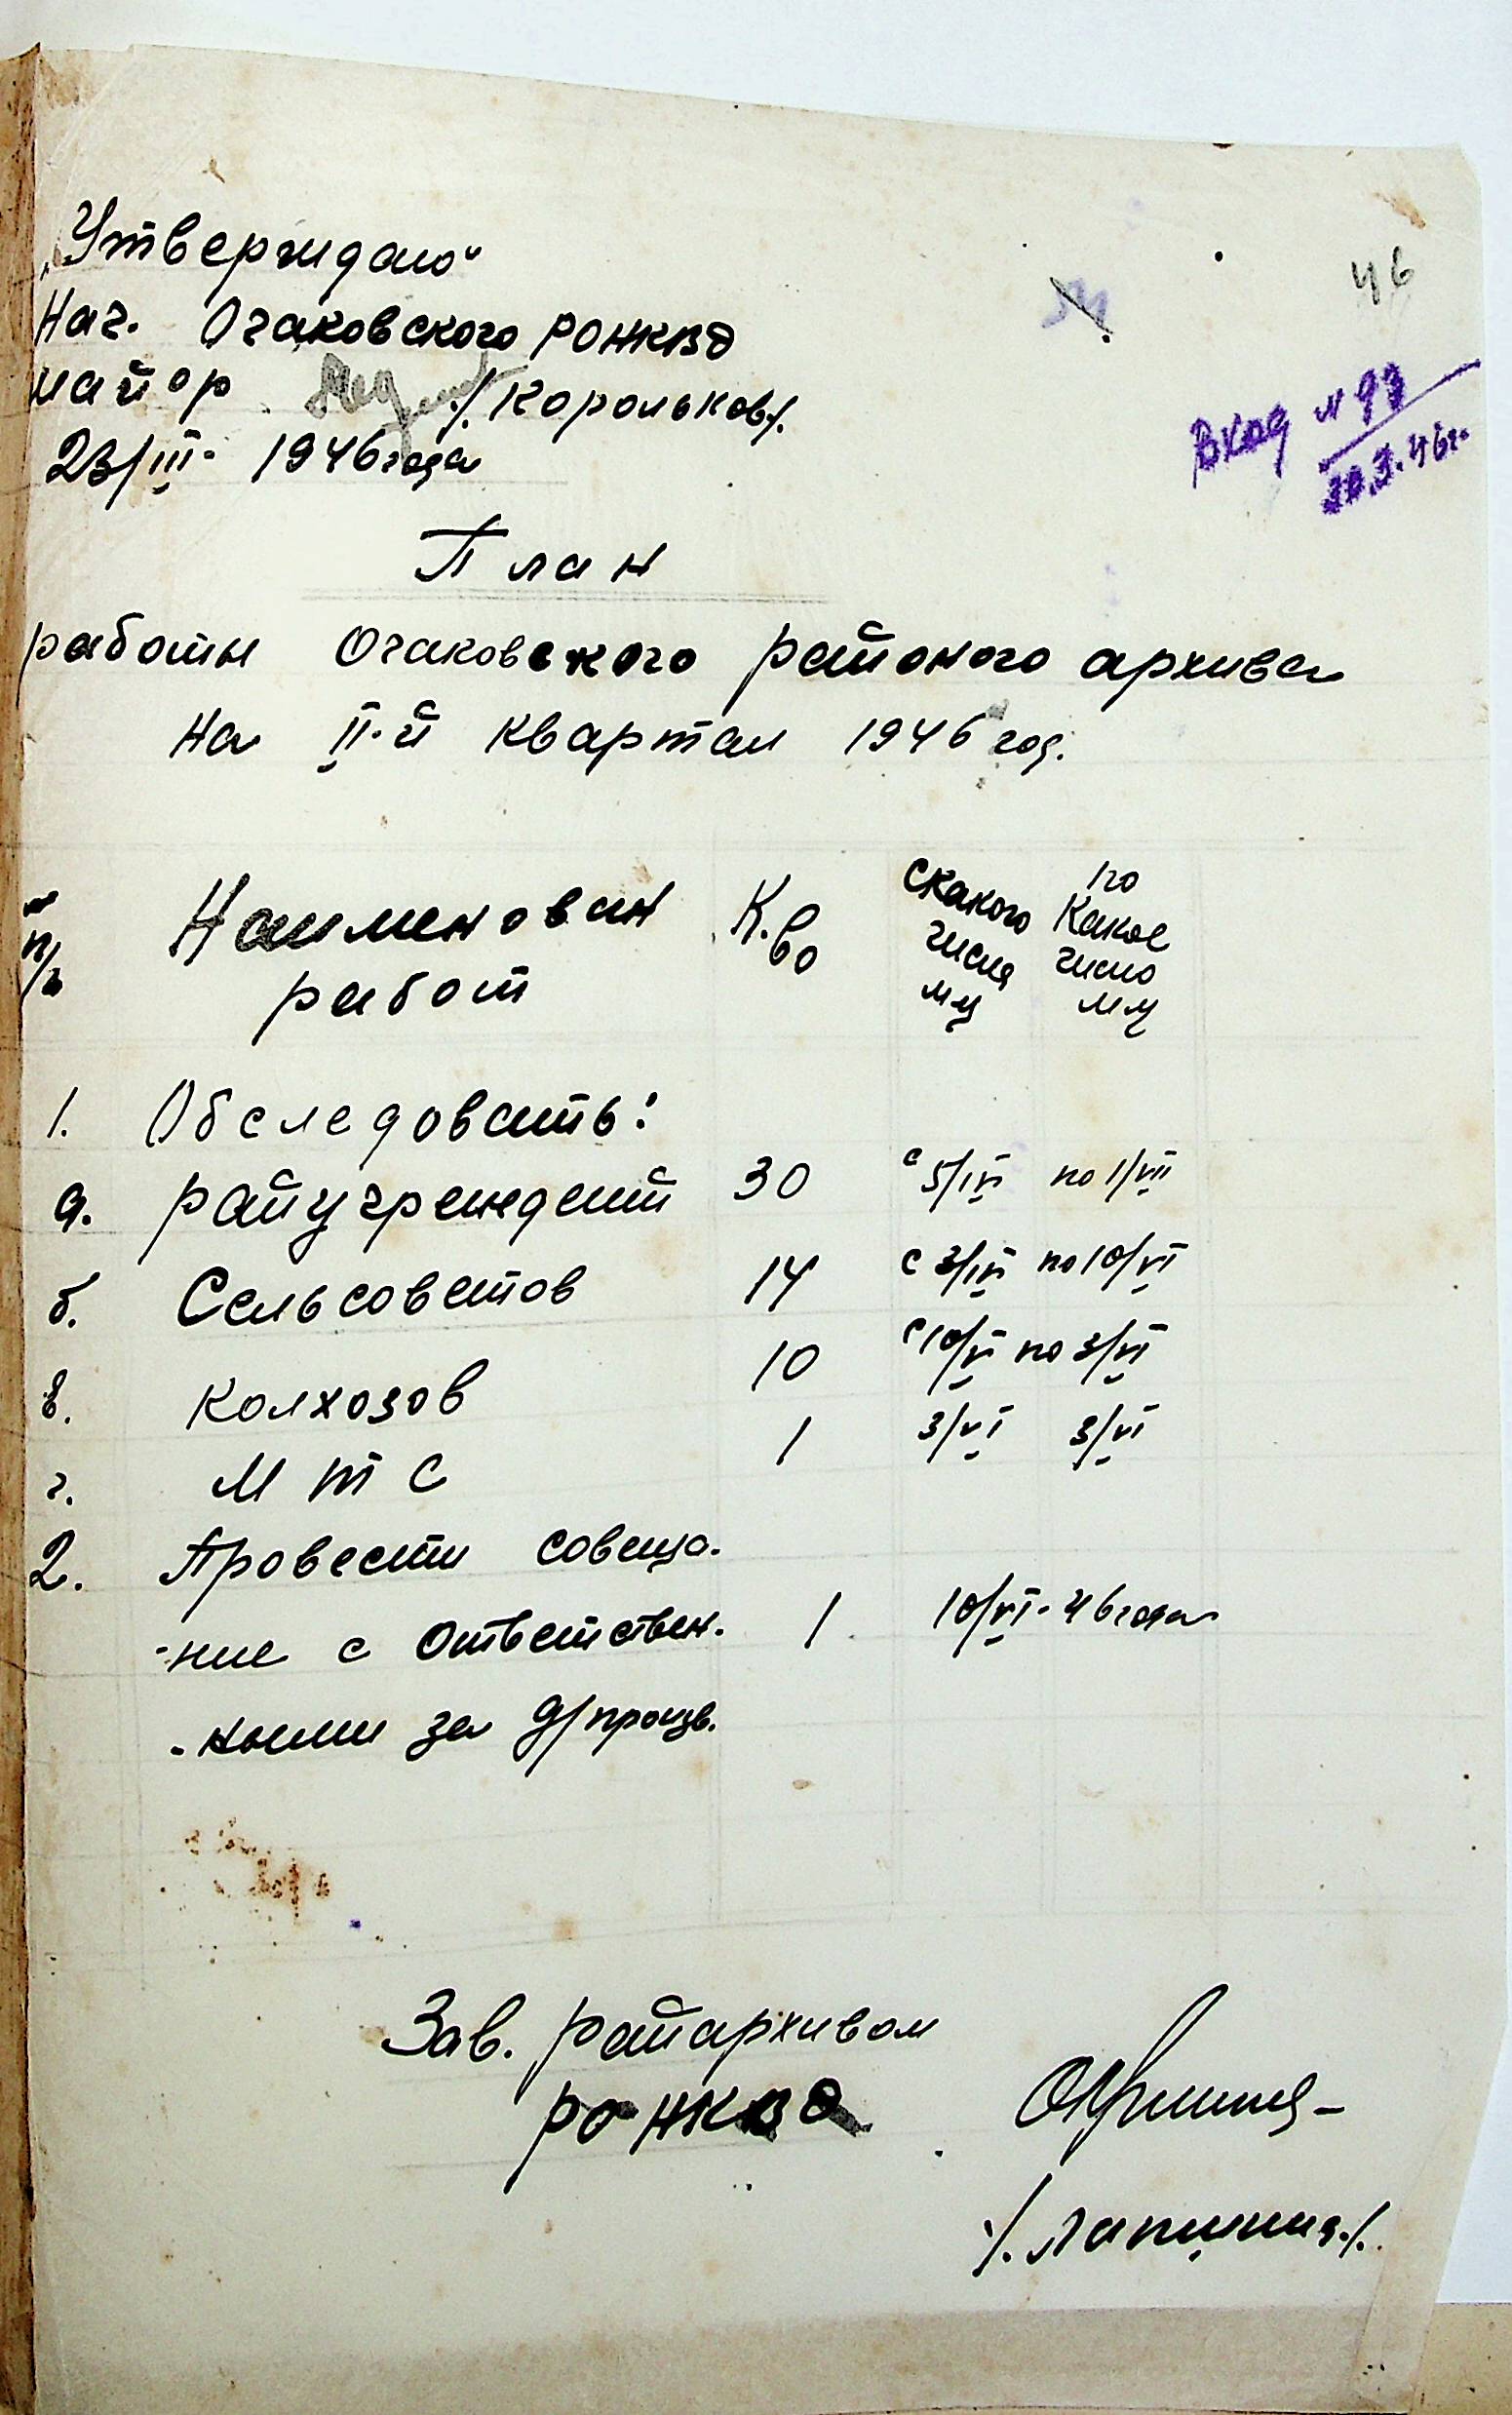 46
„Утверждаю“
Нач. Очаковского РОНКВД
майор /Корольков/.
23/III- 1946 года
Вход N 97
30.3.46г.
План
работы Очаковского районого архива
на II-й квартал 1946 год.
п/п Наименован работ К-во с какого числа м-ц по какое число м-ц
1. Обследовать:
а. райучреждений 30 с 5/IV по 1/VII
б. Сельсоветов 14 с 3/IV по 10/VI
в. Колхозов 10 с 10/V по 3/VI
г. МТС 1 3/VI 3/VI
2. Провести совеща-
-ние с ответствен- 1 10/VI-46 года
-ными за д/произв.
Зав. райархивом
РО НКВД